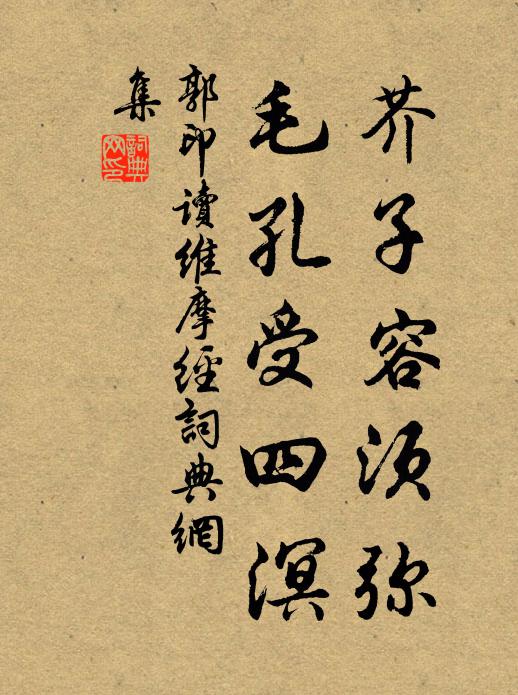 芥子容须弥
毛孔受四溟
郭印讀維摩經詞典網
集
詞典
网印